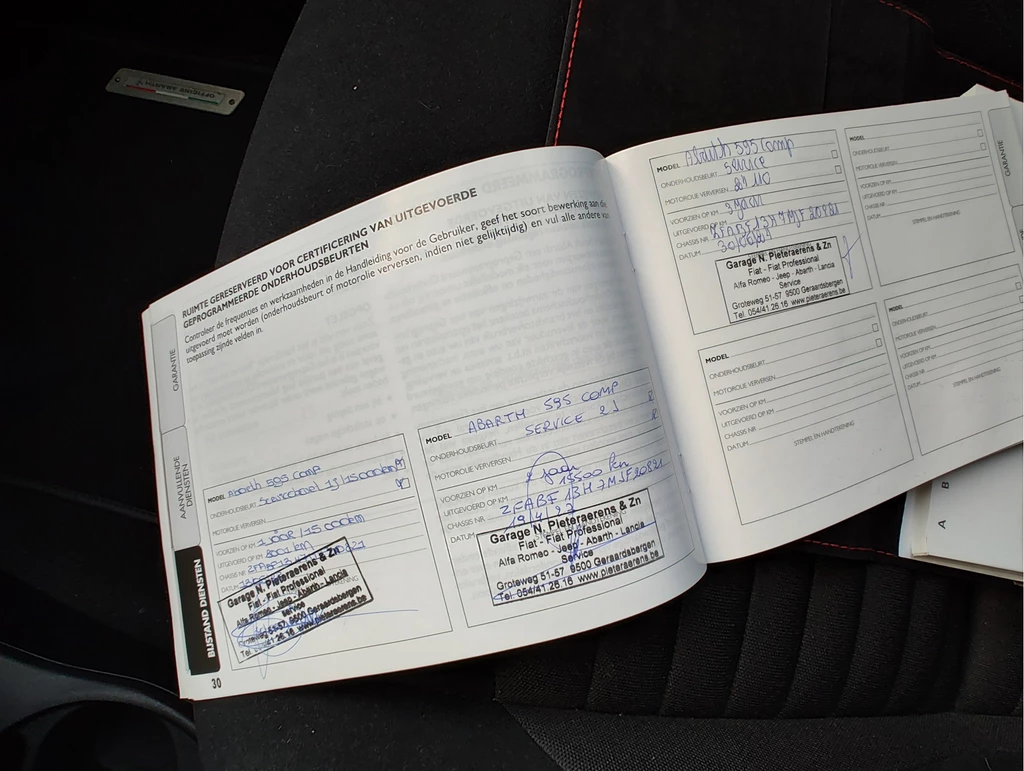 OFFICINE ABARTH
RUIMTE GERESERVEERD VOOR CERTIFICERING VAN UITGEVOERDE
GEPROGRAMMEERDE ONDERHOUDSBEURTEN
Controleer de frequenties en werkzaamheden in de Handleiding voor de Gebruiker, geef het soort bewerking aan die
uitgevoerd moet worden (onderhoudsbeurt of motorolie verversen, indien niet gelijktijdig) en vul alle andere van
toepassing zijnde velden in.
GARANTIE
AANVULLENDE
DIENSTEN
BIJSTAND DIENSTEN
MODEL abarth 595 comp
ONDERHOUDSBEURT
MOTOROLIE VERVERSEN
VOORZIEN OP KM 1 JAAR /15.000km
UITGEVOERD OP KM 8001 km
CHASSIS NR.
DATUM
Garage N. Pieteraerens & Zn
Fiat - Fiat Professional
Alfa Romeo - Jeep - Abarth - Lancia
service
Groteweg 51-57 9500 Geraardsbergen
Tel 054/41.26.16 www.pieteraerens.be
30
MODEL ABARTH 595 COMP
ONDERHOUDSBEURT SERVICE 2J
MOTOROLIE VERVERSEN
VOORZIEN OP KM 2 jaar
UITGEVOERD OP KM 15500 km
CHASSIS NR. ZFABF13H7MJF20821
DATUM
Garage N. Pieteraerens & Zn
Fiat - Fiat Professional
Alfa Romeo - Jeep - Abarth - Lancia
Service
Groteweg 51-57 9500 Geraardsbergen
Tel 054/41.26.16 www.pieteraerens.be
MODEL Abarth 595 Comp
ONDERHOUDSBEURT Service
MOTOROLIE VERVERSEN
VOORZIEN OP KM 3 jaar
UITGEVOERD OP KM
CHASSIS NR.
DATUM
Garage N. Pieteraerens & Zn
Fiat - Fiat Professional
Alfa Romeo - Jeep - Abarth - Lancia
Service
Groteweg 51-57 9500 Geraardsbergen
Tel 054/41.26.16 www.pieteraerens.be
MODEL
ONDERHOUDSBEURT
MOTOROLIE VERVERSEN
VOORZIEN OP KM
UITGEVOERD OP KM
CHASSIS NR.
DATUM
STEMPEL EN HANDTEKENING
MODEL
ONDERHOUDSBEURT
MOTOROLIE VERVERSEN
VOORZIEN OP KM
UITGEVOERD OP KM
CHASSIS NR.
DATUM
STEMPEL EN HANDTEKENING
MODEL
ONDERHOUDSBEURT
MOTOROLIE VERVERSEN
VOORZIEN OP KM
UITGEVOERD OP KM
CHASSIS NR.
DATUM
STEMPEL EN HANDTEKENING
GARANTIE
A
B